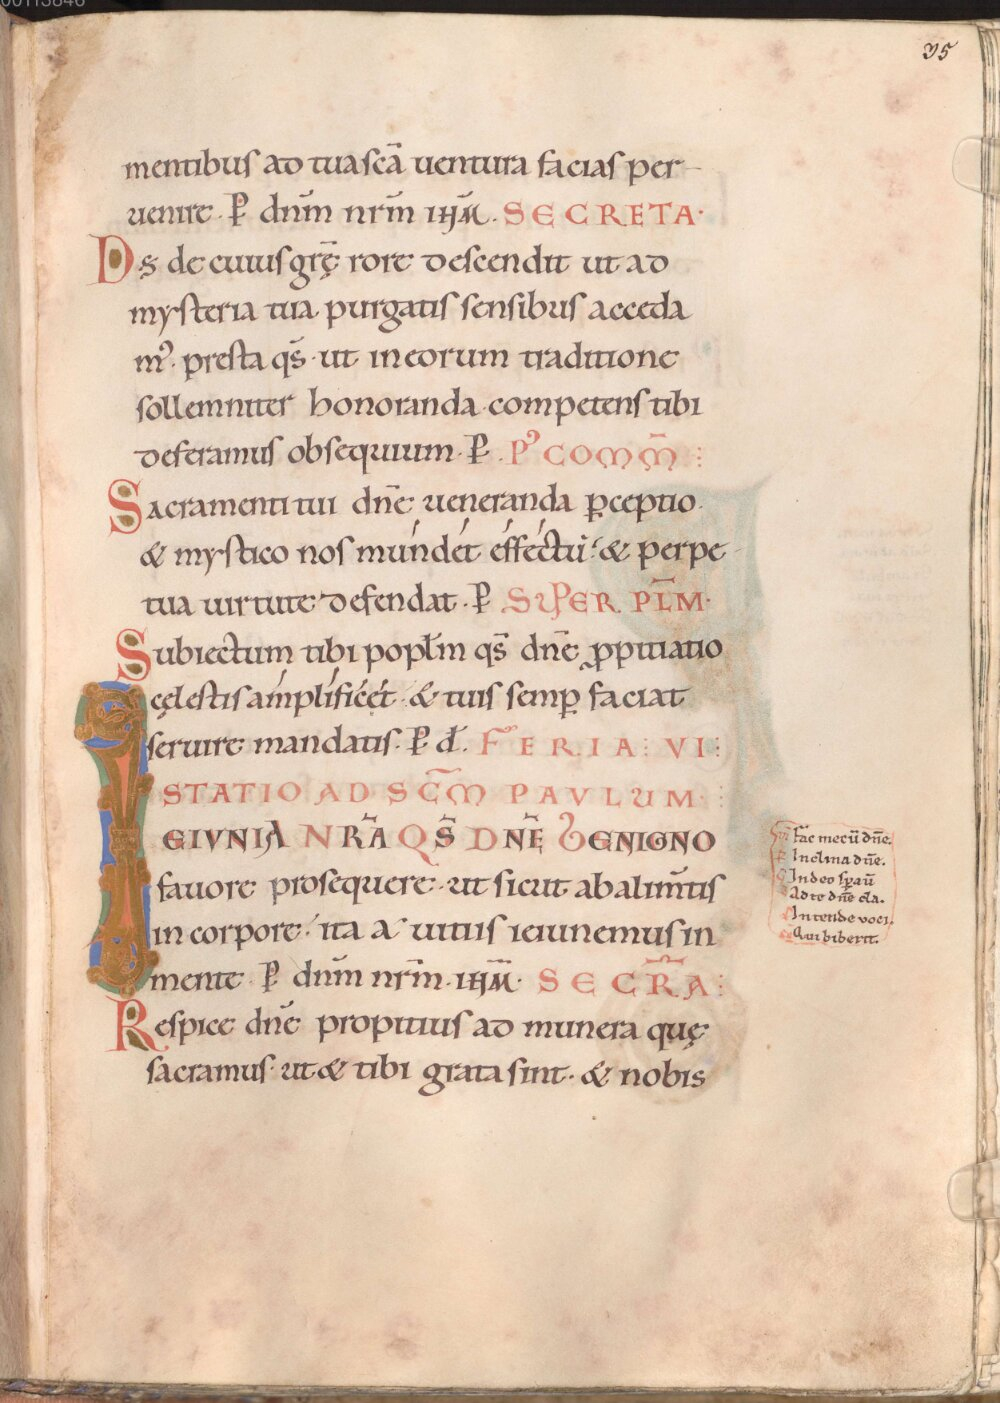 35
mentibus ad tua scā uentura facias per-
uenire. P̄ dn̄m nr̄m iħm̄. SECRETA.
Ds̄ de cuius grę̄ rore descendit ut ad
mysteria tua purgatis sensibus acceda
m᾽. presta qs̄. ut in eorum traditione
sollemniter honoranda competens tibi
deferamus obsequium. P̄. P᾽ COMM̄:
Sacramenti tui dn̄e ueneranda ꝑceptio
& mystico nos múndet éfféctū. & perpe-
tua uirtute defendat. P̄ SUPER PL̄M.
Subiectum tibi popl̄m qs̄ dn̄e ꝓpitiatio
cęlestis ámplíficét. & tuis semꝑ faciat
seruire mandatis. P̄ d̄. FERIA: VI:
STATIO AD SC̄M PAVLUM.
IEIVNIA NR̄A QS̄ DN̄E BENIGNO
fauore prosequere. ut sicut ab alim̄tis
in corpore. ita a uitiis ieiunemus in
mente. P̄ dn̄m nr̄m. iħm̄. SECR̄A:
Respice dn̄e propitius ad munera quę
sacramus. ut & tibi grata sint. & nobis
fac mecū dn̄e.
Inclina dn̄e.
In deo sꝑauī
Ad te dn̄e cla.
Intende voci.
Qui biberit.